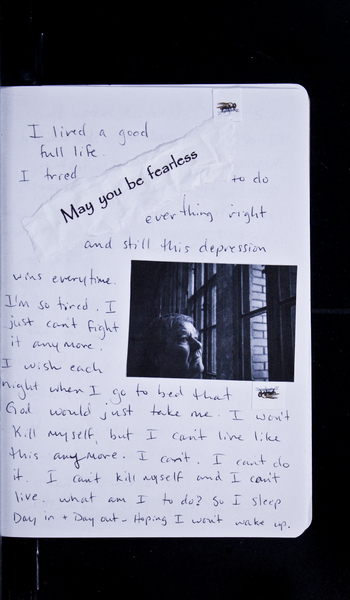 I lived a good
full life.
I tried
May you be fearless
to do
everything right
and still this depression
wins everytime.
I'm so tired. I
just can't fight
it anymore.
I wish each
night when I go to bed that
God would just take me. I won't
kill myself, but I can't live like
this anymore. I can't. I can't do
it. I can't kill myself and I can't
live. what am I to do? So I sleep
Day in + Day out - Hoping I won't wake up.